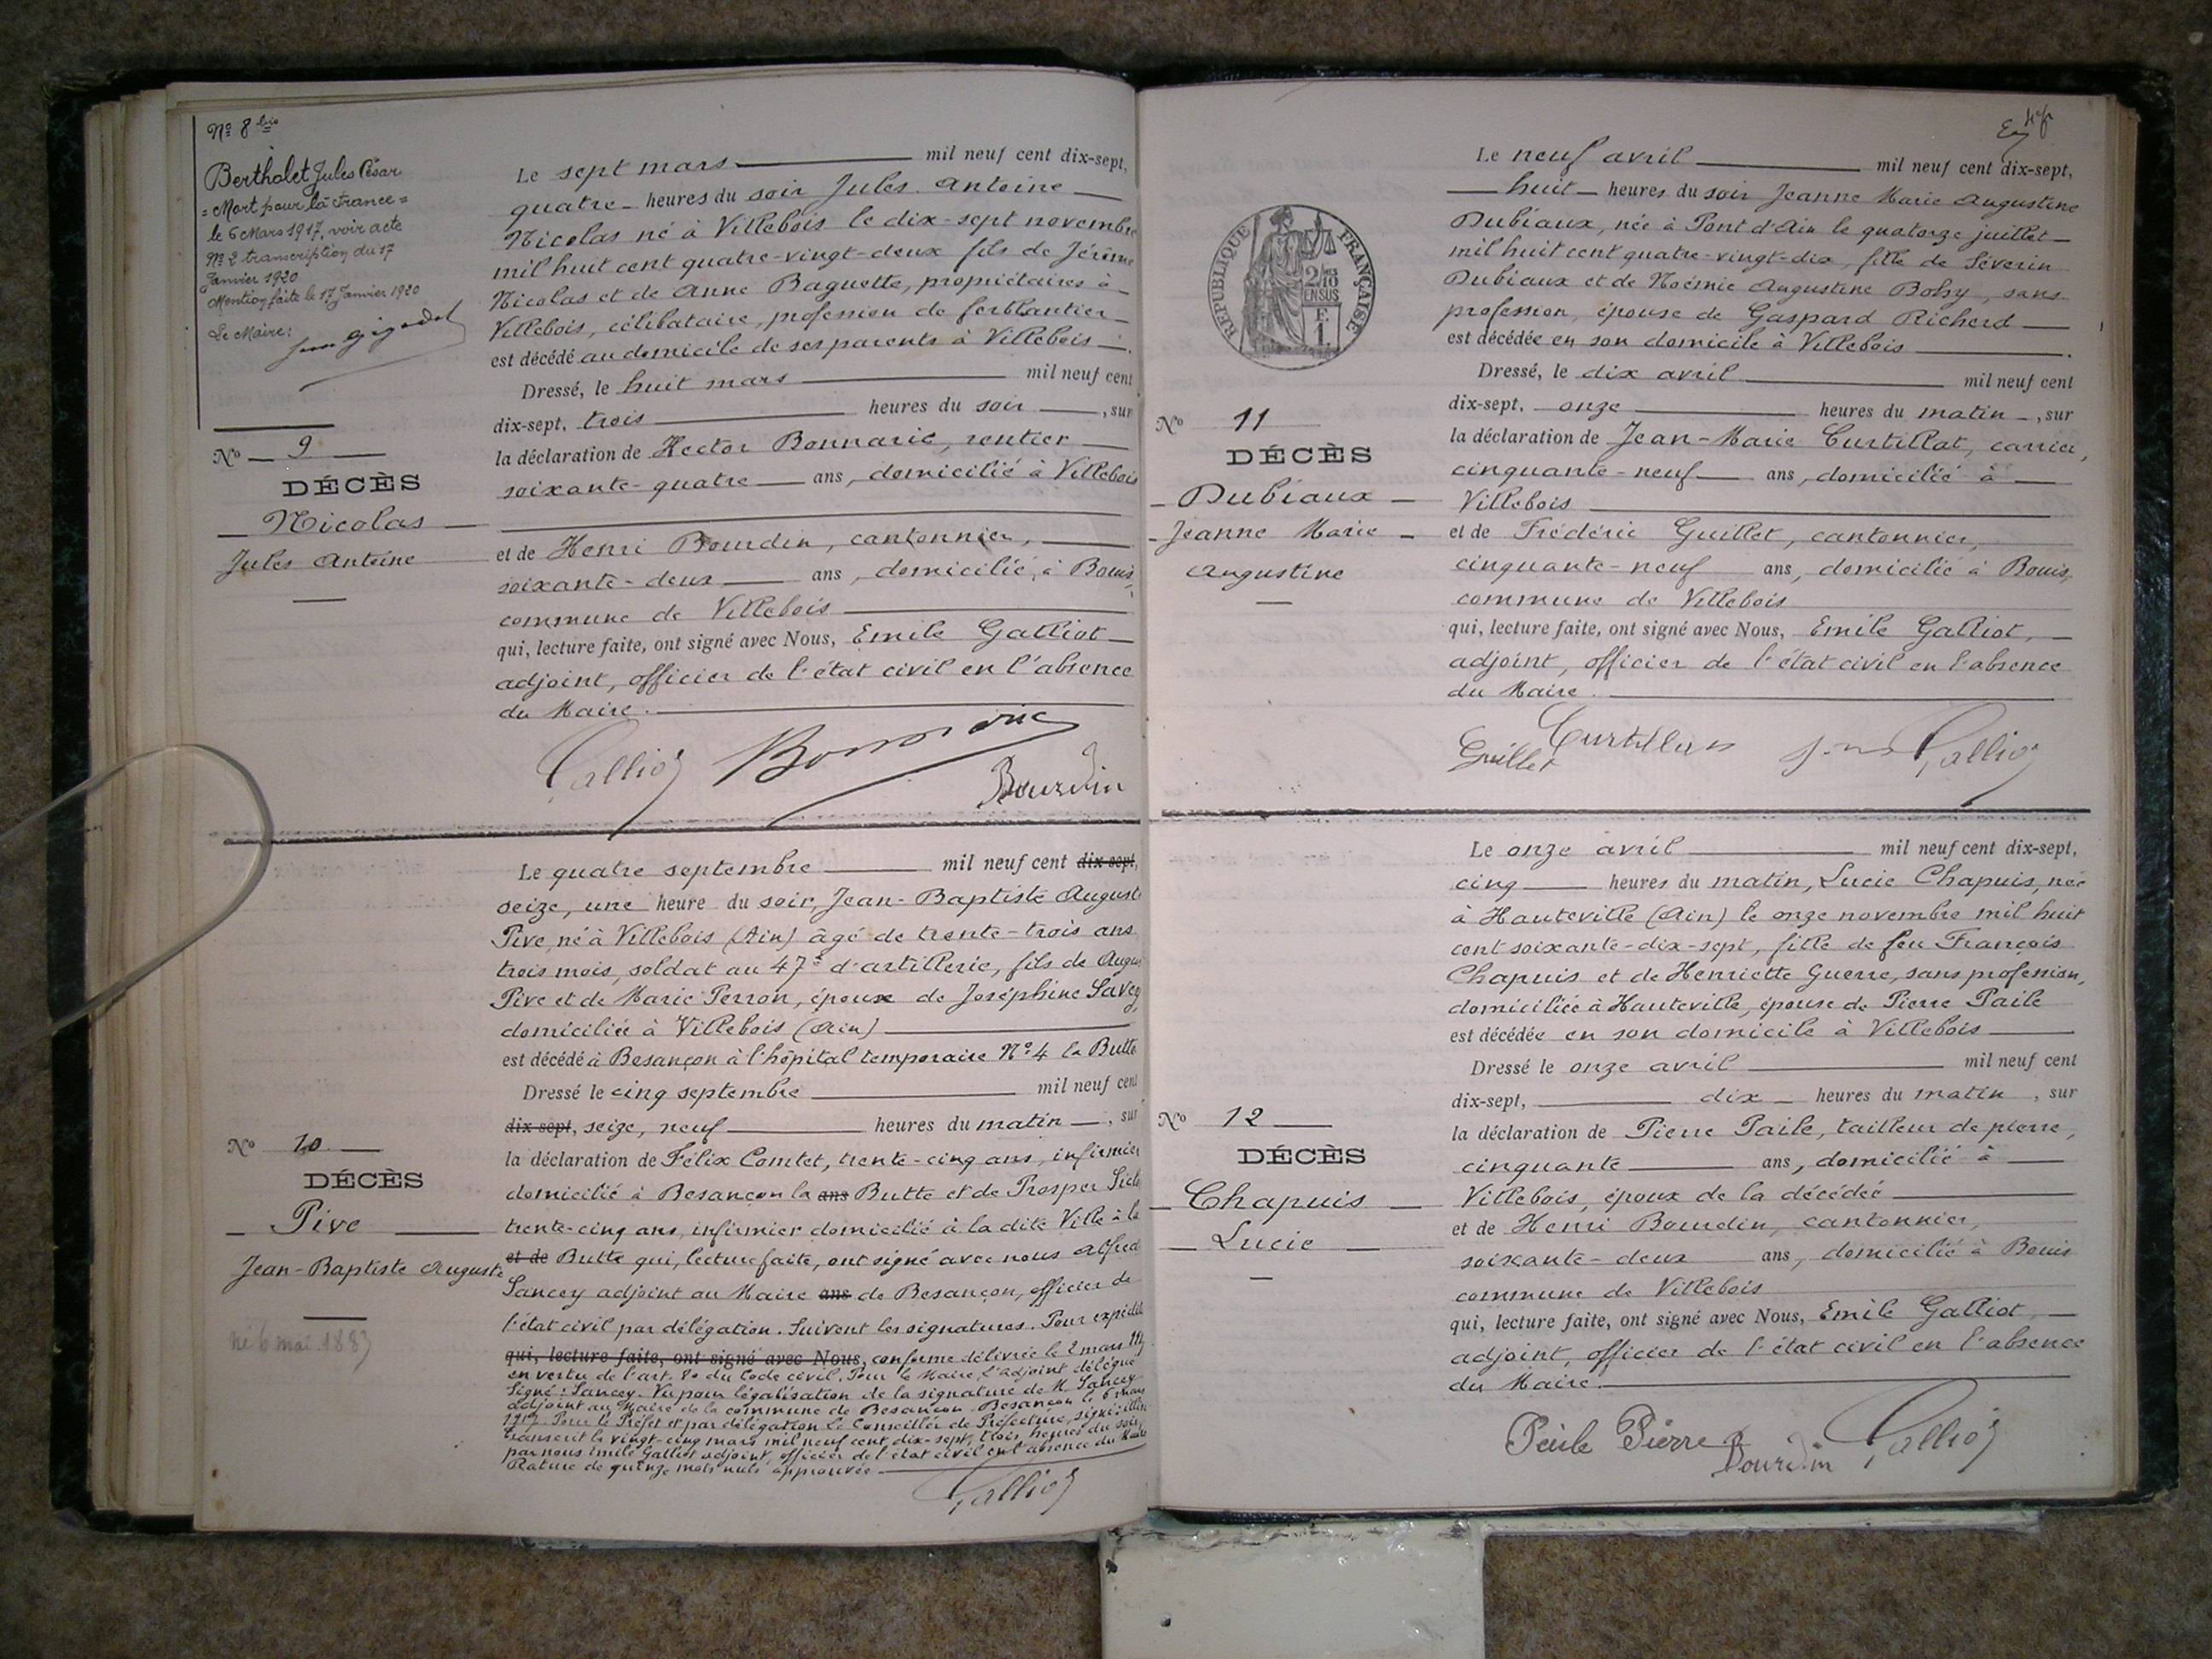 Nº 8 bis
Berthelet Jules César
= Mort pour la France =
le 6 Mars 1917, voir acte
Nº 2 transcription du 17
Janvier 1920
Mention faite le 17 Janvier 1920
Le Maire:
Nº 9
DÉCÈS
Nicolas
Jules Antoine
Le sept mars mil neuf cent dix-sept,
quatre heures du soir Jules Antoine
Nicolas né à Villebois le dix-sept novembre
mil huit cent quatre-vingt-deux fils de Jérôme
Nicolas et de Anne Baguette, propriétaires à
Villebois, célibataire, profession de ferblantier
est décédé au domicile de ses parents à Villebois.
Dressé, le huit mars mil neuf cent
dix-sept, trois heures du soir, sur
la déclaration de Hector Bonnaric, rentier
soixante-quatre ans, domicilié à Villebois
et de Henri Bourdin, cantonnier,
soixante-deux ans, domicilié, à Bouis,
commune de Villebois
qui, lecture faite, ont signé avec Nous, Emile Galliot
adjoint, officier de l'état civil en l'absence
du Maire.
Galliot Bonnaric
Bourdin
Nº 10
DÉCÈS
Pive
Jean-Baptiste Auguste
né 6 mai 1883
Le quatre septembre mil neuf cent dix-sept,
seize, une heure du soir, Jean-Baptiste Auguste
Pive, né à Villebois (Ain) âgé de trente-trois ans
trois mois, soldat au 47e d'artillerie, fils de Augus
Pive et de Marie Perron, époux de Joséphine Savey,
domiciliée à Villebois (Ain)
est décédé à Besançon à l'hôpital temporaire Nº 4 la Butte
Dressé le cinq septembre mil neuf cent
dix-sept, seize, neuf heures du matin, sur
la déclaration de Félix Comtet, trente-cinq ans, infirmier
domicilié à Besançon la ans Butte et de Prosper
trente-cinq ans, infirmier domicilié à la dite Ville à la
et de Butte qui, lecture faite, ont signé avec nous Alfred
Sancey adjoint au Maire ans de Besançon, officier de
l'état civil par délégation. Suivent les signatures. Pour expédit
qui, lecture faite, ont signé avec Nous, conforme délivrée le 2 mars
en vertu de l'art. 80 du Code civil. Pour le Maire, L'adjoint délégué
Signé: Sancey. Vu pour légalisation de la signature de M. Sancey
adjoint au Maire de la commune de Besançon. Besançon le 6 mars
1917. Pour le Préfet et par délégation le Conseiller de Préfecture, signé:
Transcrit le vingt-cinq mars mil neuf cent dix-sept, trois heures du soir,
par nous Emile Galliot adjoint, officier de l'état civil en l'absence du Maire
Rature de quinze mots nuls approuvée
Galliot
Nº 11
DÉCÈS
Dubiaux
Jeanne Marie
Augustine
REPUBLIQUE FRANÇAISE
2/10
EN SUS
F.
1.
Le neuf avril mil neuf cent dix-sept,
huit heures du soir Jeanne Marie Augustine
Dubiaux, née à Pont d'Ain le quatorze juillet
mil huit cent quatre-vingt-dix, fille de Séverin
Dubiaux et de Noémie Augustine Bohy, sans
profession, épouse de Gaspard Richerd
est décédée en son domicile à Villebois.
Dressé, le dix avril mil neuf cent
dix-sept, onze heures du matin, sur
la déclaration de Jean-Marie Curtillat, carrier,
cinquante-neuf ans, domicilié à
Villebois
et de Frédéric Guillet, cantonnier,
cinquante-neuf ans, domicilié à Bouis,
commune de Villebois
qui, lecture faite, ont signé avec Nous, Emile Galliot,
adjoint, officier de l'état civil en l'absence
du Maire.
Curtillat
Guillet Galliot
Nº 12
DÉCÈS
Chapuis
Lucie
Le onze avril mil neuf cent dix-sept,
cinq heures du matin, Lucie Chapuis, née
à Hauteville (Ain) le onze novembre mil huit
cent soixante-dix-sept, fille de feu François
Chapuis et de Henriette Guerre, sans profession,
domiciliée à Hauteville, épouse de Pierre Paile
est décédée en son domicile à Villebois
Dressé le onze avril mil neuf cent
dix-sept, dix heures du matin, sur
la déclaration de Pierre Paile, tailleur de pierre,
cinquante ans, domicilié à
Villebois, époux de la décédée
et de Henri Bourdin, cantonnier,
soixante-deux ans, domicilié à Bouis
commune de Villebois
qui, lecture faite, ont signé avec Nous, Emile Galliot,
adjoint, officier de l'état civil en l'absence
du Maire.
Peile Pierre Bourdin Galliot